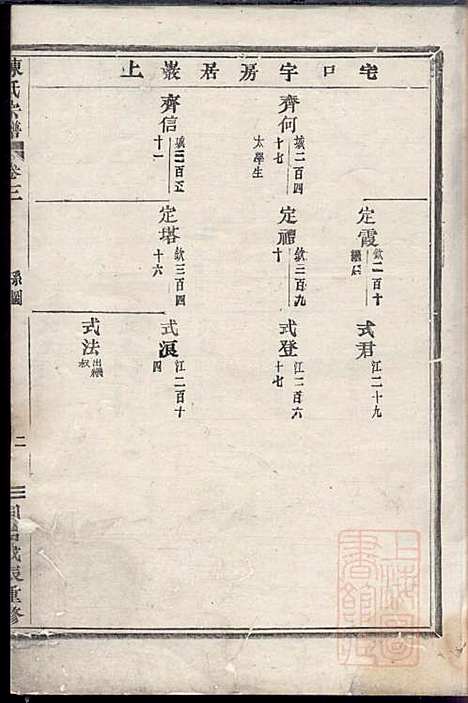 宅口字房居叢上
齊何
城二百四十七
太學生
齊信
城三百五十一
定霞
欽二百十
繼后
定禮
欽三百九十
定塔
欽三百四十六
式君
江二十九
式登
江二百六十七
式浪
江二百十四
式法
出繼叔
陳氏宗譜
卷三
系圖
二
同治戊辰重修